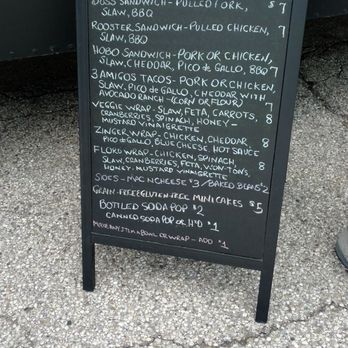 BOSS SANDWICH - PULLED PORK, $7
SLAW, BBQ
ROOSTER SANDWICH - PULLED CHICKEN, 7
SLAW, BBQ
HOBO SANDWICH - PORK OR CHICKEN,
SLAW, CHEDDAR, PICO DE GALLO, BBQ 7
3 AMIGOS TACOS - PORK OR CHICKEN,
SLAW, PICO DE GALLO, CHEDDAR WITH 7
AVOCADO RANCH - (CORN OR FLOUR)
VEGGIE WRAP - SLAW, FETA, CARROTS, 8
CRANBERRIES, SPINACH, HONEY -
MUSTARD VINAIGRETTE
ZINGER WRAP - CHICKEN, CHEDDAR, 8
PICO DE GALLO, BLUE CHEESE, HOT SAUCE
WRAP - CHICKEN, SPINACH, 8
SLAW, CRANBERRIES, FETA, WON-TONS,
HONEY-MUSTARD VINAIGRETTE
SIDES - MAC N CHEESE $3 / BAKED BEANS $2
GRAIN-FREE GLUTEN-FREE MINI CAKES $5
BOTTLED SODA POP $2
CANNED SODA POP OR H2O $1
MAKE ANY ITEM A BOWL OR WRAP - ADD $1